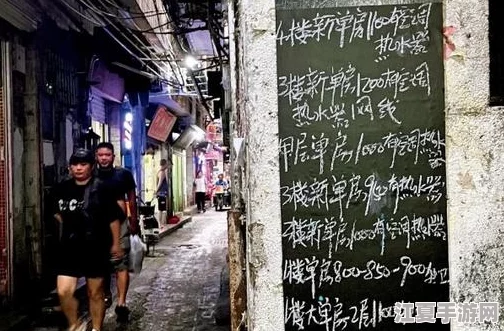 4楼新单房1100有空调
热水器
3楼新单房1200有空调
热水器网线
甲层单房1000有空调热水
3楼新单房950有热水器
3楼新单房1000有空调热水器
1楼单房800-850-900
1楼大单房2房
江夏手游网